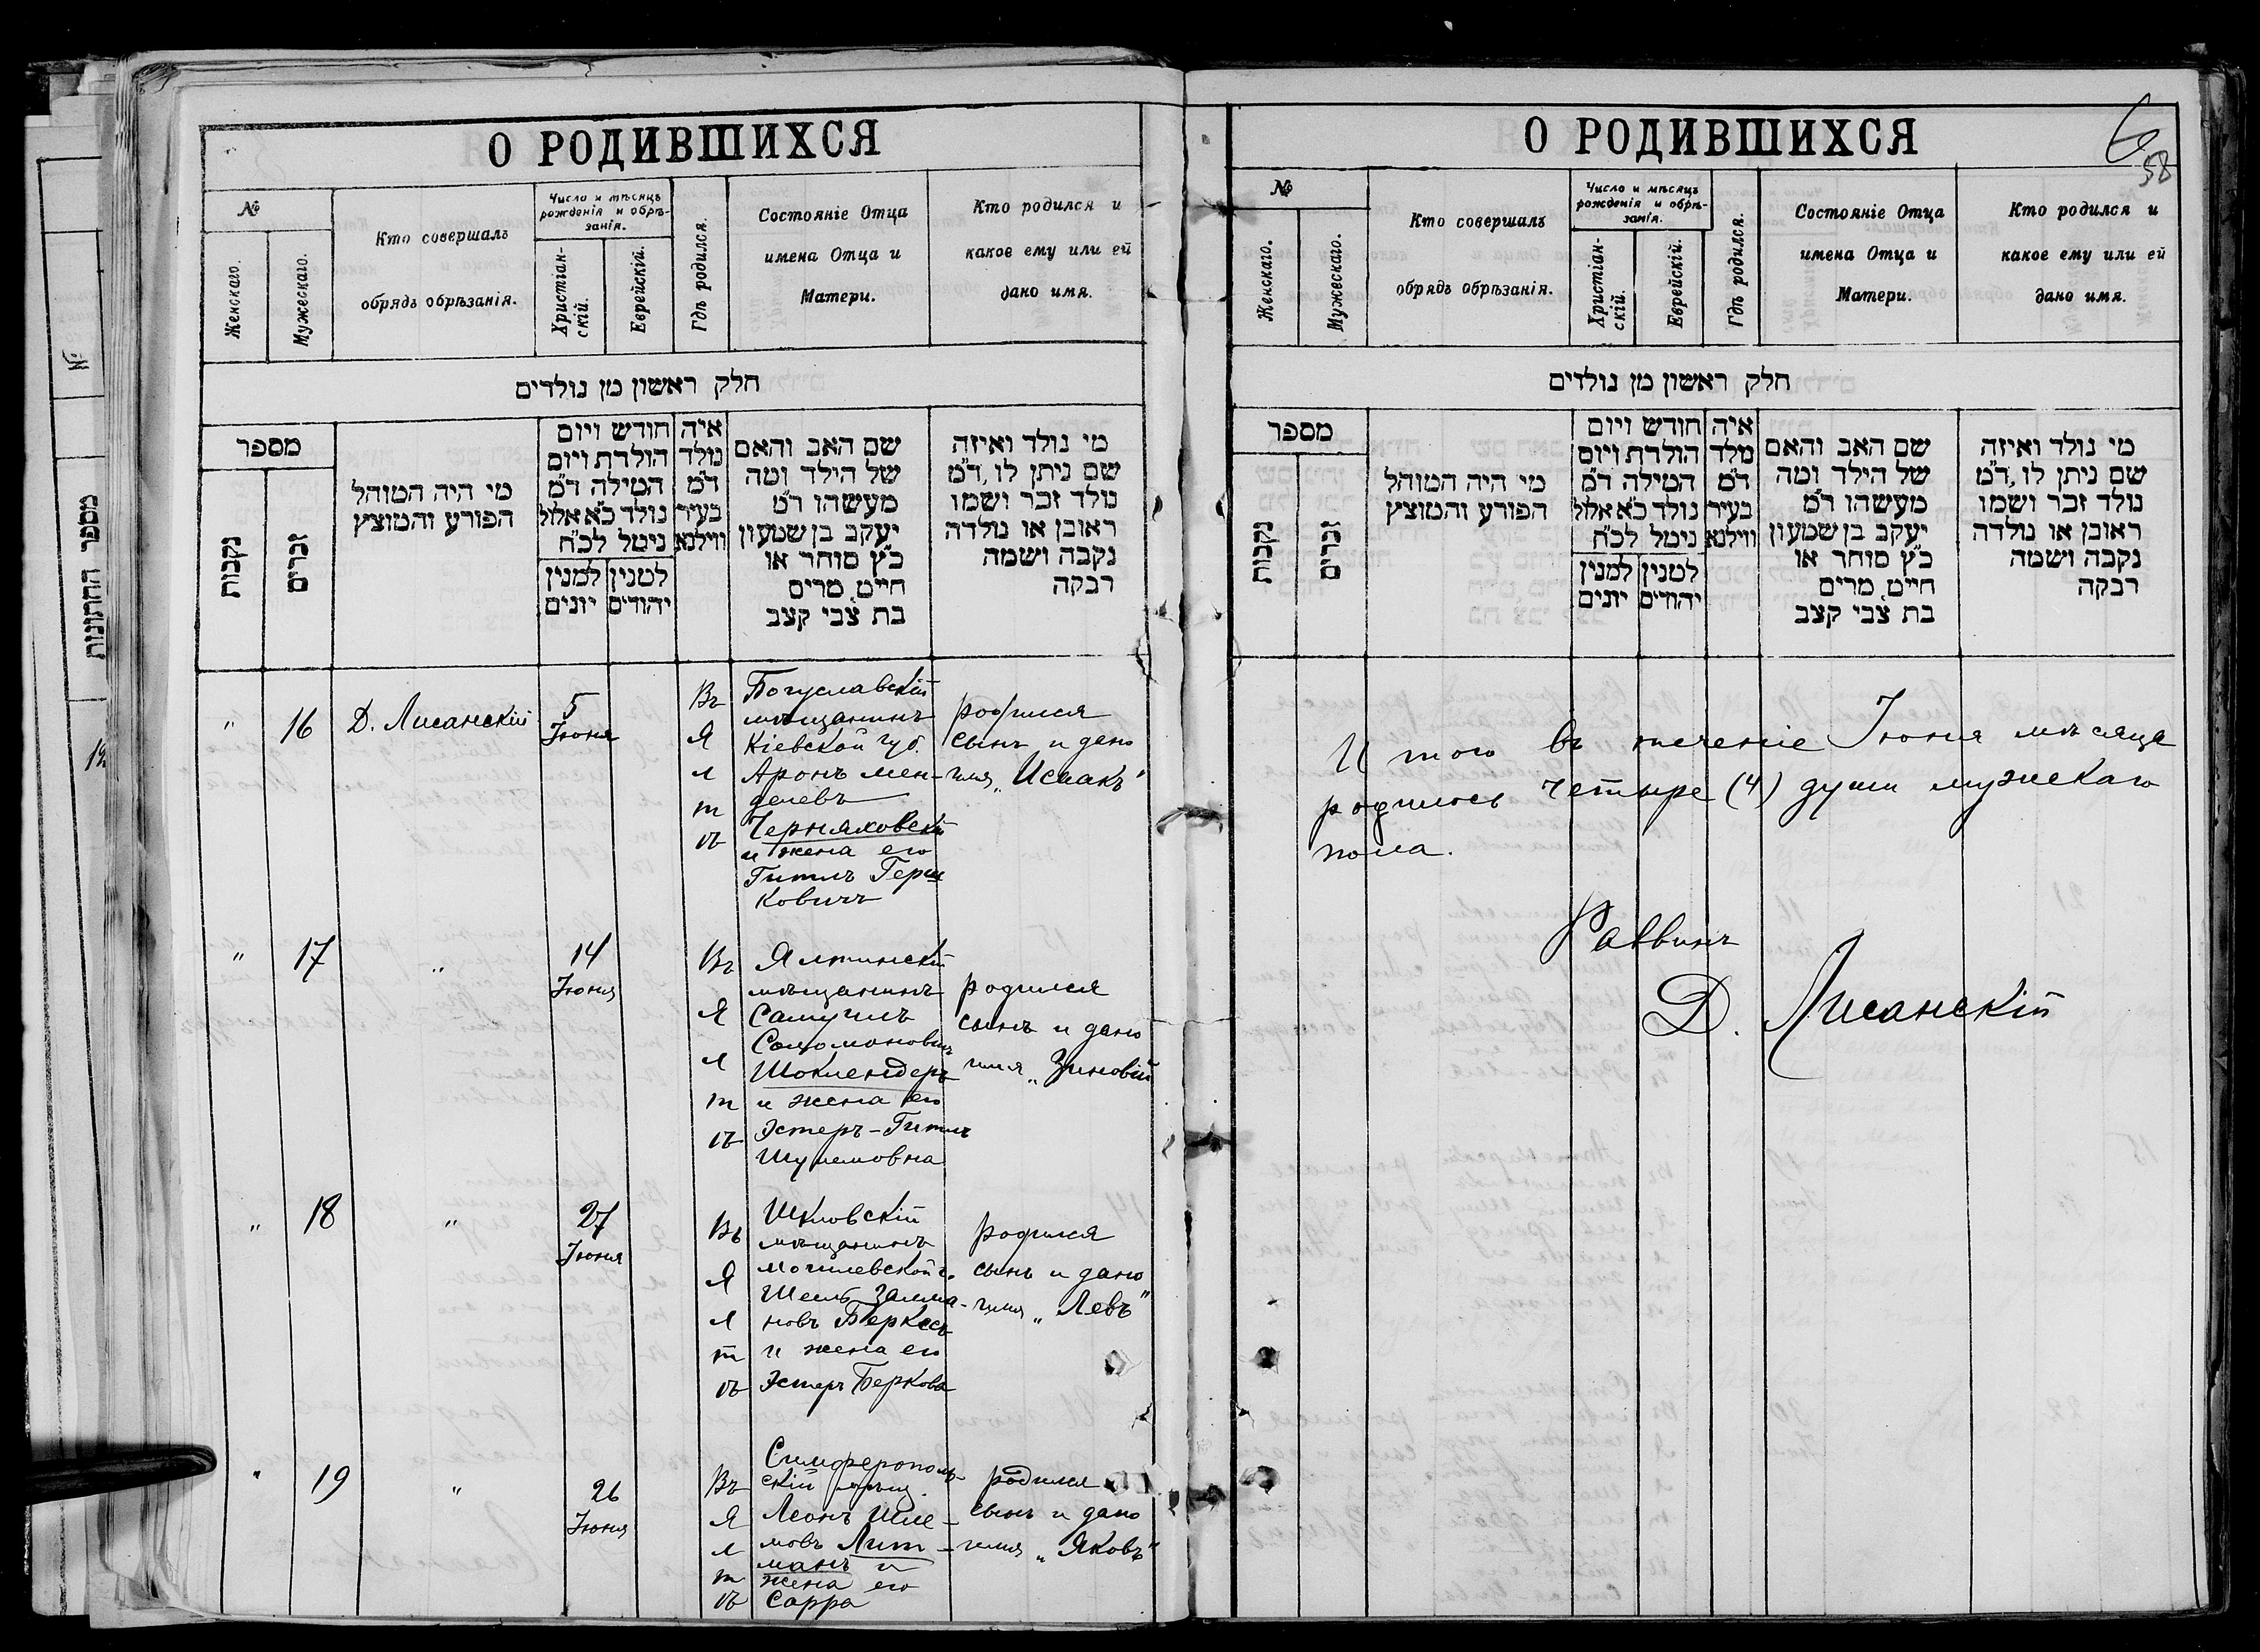 О РОДИВШИХСЯ
№
Женскаго.
Мужескаго.
Кто совершалъ
обрядъ обрѣзанія.
Число и мѣсяцъ
рожденія и обрѣ-
занія.
Христіан-
скій.
Еврейскій.
Гдѣ родился.
Состояніе Отца
имена Отца и
Матери.
Кто родился и
какое ему или ей
дано имя.
חלק ראשון מן נולדים
מספר
נקבות
זכרים
מי היה המוהל
הפורע והמוצץ
חודש ויום
הולדת ויום
המילה ד״מ
נולד כ״א אלול
ניטל לכ״ח
למנין יונים
למנין יהודים
איה
נולד
ד״מ
בעיר
ווילנא
שם האב והאם
של הילד ומה
מעשהו ד״מ
יעקב בן שמעון
כ״ץ סוחר או
חייט, מרים
בת צבי קצב
מי נולד ואיזה
שם ניתן לו, ד״מ
נולד זכר ושמו
ראובן או נולדה
נקבה ושמה
רבקה
" 16 Д. Лисанскій
5
Іюня
Въ Ялтѣ
Богуславскій
мѣщанинъ
Кіевской губ.
Аронъ Мен-
делевъ
Черняховскій
и жена его
Гитль Герш
ковичъ
родился
сынъ и дано
имя „Исаакъ"
" 17 "
14
Іюня
Въ Ялтѣ
Ялтинскій
мѣщанинъ
Самуилъ
Соломоновичъ
Шоклендеръ
и жена его
Эстеръ-Гитль
Шулемовна
родился
сынъ и дано
имя „Зиновій
" 18 "
27
Іюня
Въ Ялтѣ
Шкловскій
мѣщанинъ
Могилевской г.
Залма-
новъ
и жена его
Эстеръ Беркова
родился
сынъ и дано
имя „Левъ"
" 19 "
26
Іюня
Въ Ялтѣ
Симферополь-
скій
Леонъ Шле-
мовъ Лит-
манъ и
жена его
Сарра
родился
сынъ и дано
имя „Яковъ"
О РОДИВШИХСЯ
6
58
№
Женскаго.
Мужескаго.
Кто совершалъ
обрядъ обрѣзанія.
Число и мѣсяцъ
рожденія и обрѣ-
занія.
Христіан-
скій.
Еврейскій.
Гдѣ родился.
Состояніе Отца
имена Отца и
Матери.
Кто родился и
какое ему или ей
дано имя.
חלק ראשון מן נולדים
מספר
נקבות
זכרים
מי היה המוהל
הפורע והמוצץ
חודש ויום
הולדת ויום
המילה ד״מ
נולד כ״א אלול
ניטל לכ״ח
למנין יונים
למנין יהודים
איה
מולד
ד״מ
בעיר
ווילנא
שם האב והאם
של הילד ומה
מעשהו ד״מ
יעקב בן שמעון
כ״ץ סוחר או
חייט, מרים
בת צבי קצב
מי נולד ואיזה
שם ניתן לו, ד״מ
נולד זכר ושמו
ראובן או נולדה
נקבה ושמה
רבקה
Итого въ теченіе Іюня мѣсяца
родилось четыре (4) души мужскаго
пола.
Раввинъ
Д. Лисанскій
מספר החתונות
№